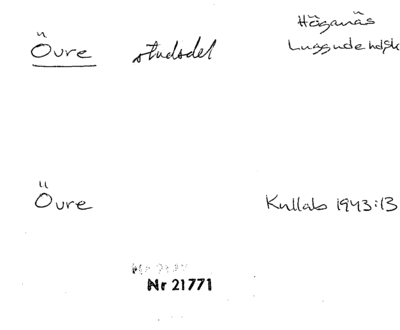 Öure stadsdel Höganäs
Luggude hdsk
Öure Kullabo 1943:13
Nr 21771